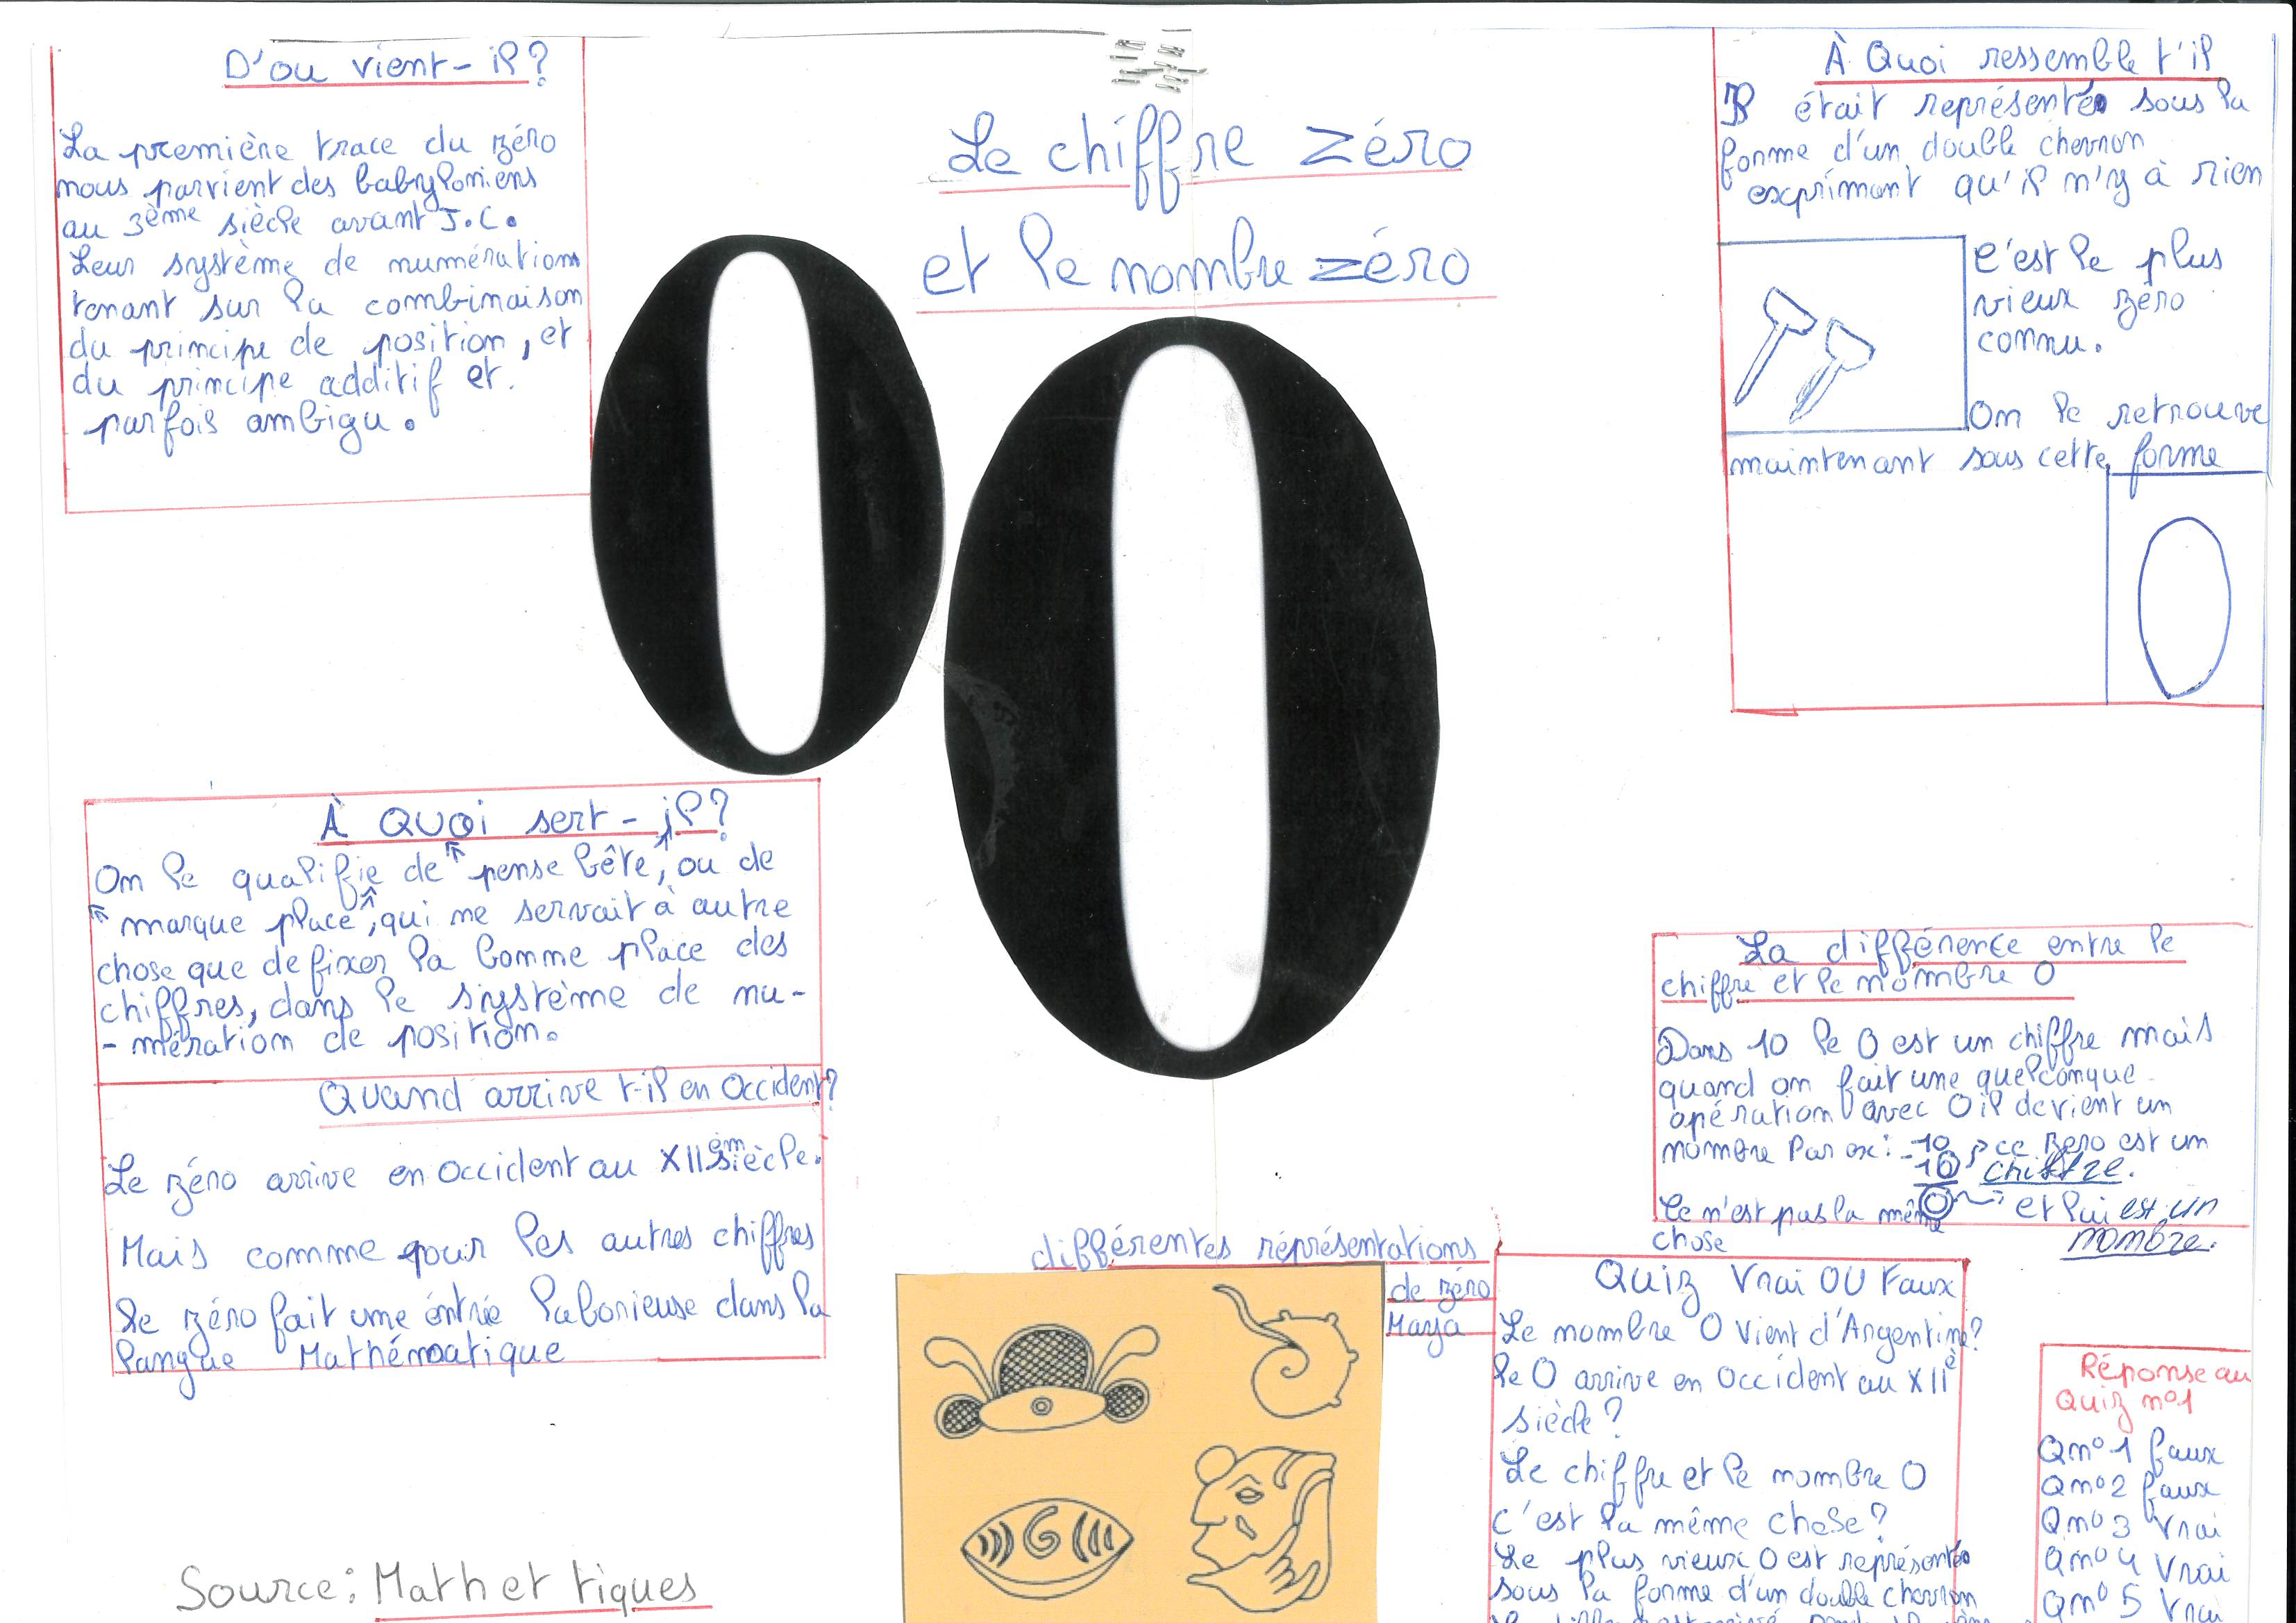 D'ou vient-il?
La première trace du zéro
nous parvient des babyloniens
au 3ème siècle avant J.C.
Leur système de numérations
tenant sur la combinaison
du principe de position, et
du principe additif et
parfois ambigu.
Le chiffre zéro
et le nombre zéro
À Quoi ressemble t'il
Il était représenté sous la
forme d'un double chevron
exprimant qu'il n'y à rien
C'est le plus
vieux zéro
connu.
On le retrouve
maintenant sous cette forme
À QUOi sert-il?
On le qualifie de "pense bête", ou de
"marque place", qui ne servait à autre
chose que de fixer la bonne place des
chiffres, dans le système de nu-
-mération de position.
Quand arrive t-il en Occident?
Le zéro arrive en occident au XIIèm siècle.
Mais comme pour les autres chiffres
le zéro fait une éntrée laborieuse dans la
langue Mathématique
Source: Math et tiques
différentes réprésentations
de zéro
Maya
La différence entre le
chiffre et le nombre 0
Dans 10 le 0 est un chiffre mais
quand on fait une quelconque
opération avec 0 il devient un
nombre Par ex: -10 ce zero est un
-10 chiffre.
Ce n'est pas la même 0 et lui est un
chose nombre.
Quiz Vrai OU Faux
Le nombre 0 vient d'Argentine?
le 0 arrive en occident au XIIè
siècle?
Le chiffre et le nombre 0
c'est la même chose?
Le plus vieux 0 est représenté
sous la forme d'un double chevron
Réponse au
Quiz n°1
Qn°1 faux
Qn°2 faux
Qn°3 Vrai
Qn°4 Vrai
Qn°5 Vrai